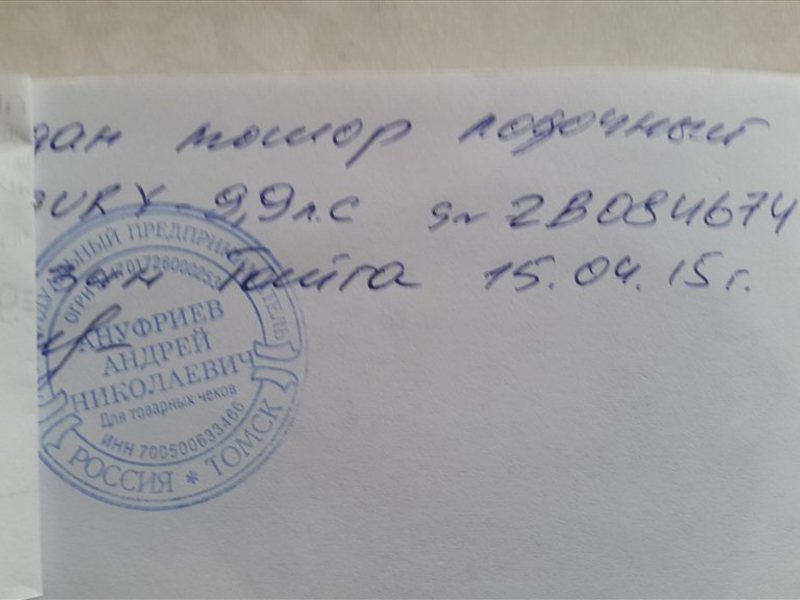 дан мотор лодочный
URY 9,9 л.с sn 2B084674
зан Тайга 15.04.15г.
ДУАЛЬНЫЙ ПРЕДПРИНИМАТЕЛЬ
АНУФРИЕВ
АНДРЕЙ
НИКОЛАЕВИЧ
Для товарных чеков
ИНН 700500633466
РОССИЯ * ТОМСК